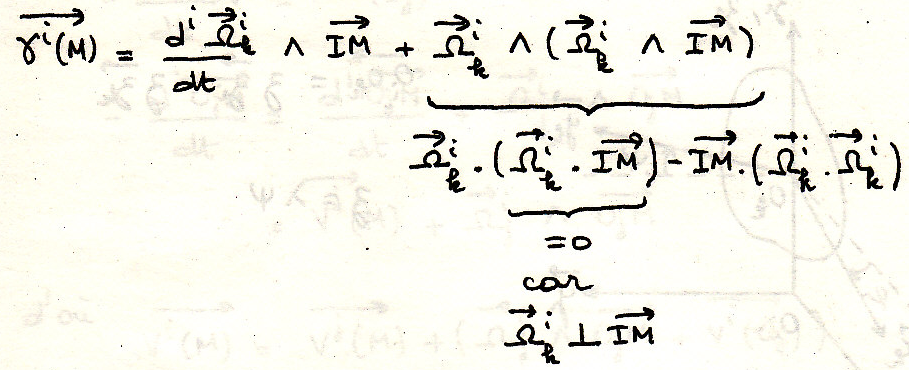 $\overrightarrow{\gamma^i(M)} = \frac{d^i \vec{\Omega}^i_k}{dt} \wedge \overrightarrow{IM} + \vec{\Omega}^i_k \wedge (\vec{\Omega}^i_k \wedge \overrightarrow{IM})$
$\vec{\Omega}^i_k . (\vec{\Omega}^i_k . \overrightarrow{IM}) - \overrightarrow{IM} . (\vec{\Omega}^i_k . \vec{\Omega}^i_k)$
= 0
car
$\vec{\Omega}^i_k \perp \overrightarrow{IM}$